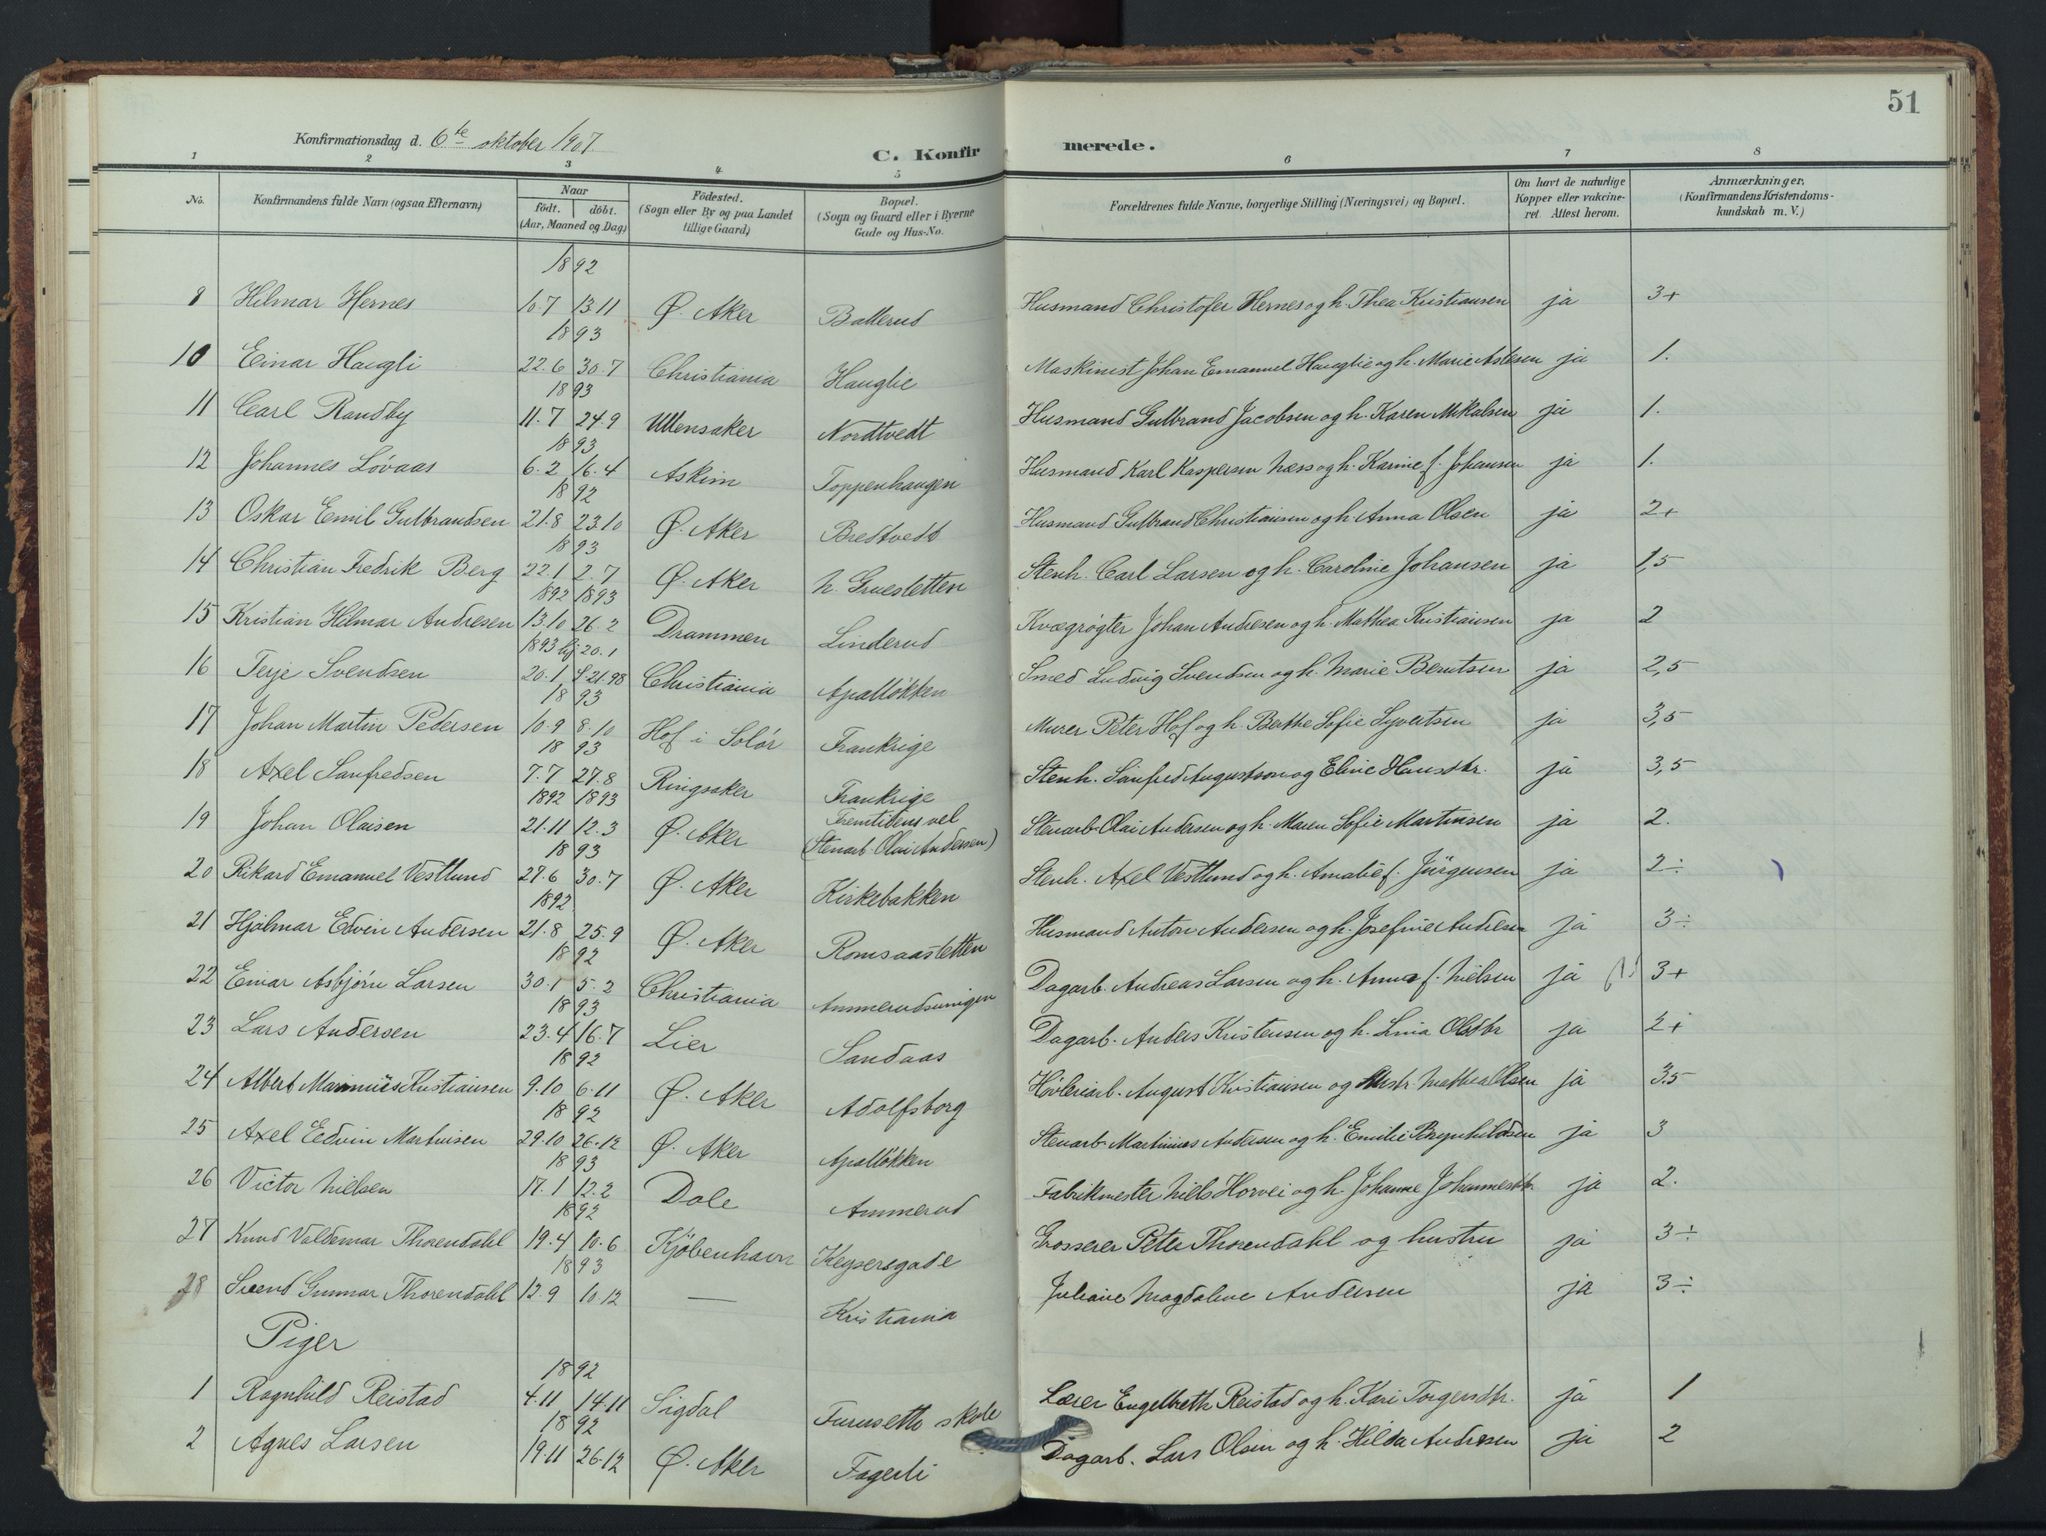 51
Konfirmationsdag d. 6te oktober 1907.
C. Konfirmerede.
1 2 3 4 5 6 7 8
No. | Konfirmandens fulde Navn (ogsaa Efternavn) | Naar født. døbt. (Aar, Maaned og Dag) | Födested. (Sogn eller By og paa Landet tillige Gaard) | Bopæl. (Sogn og Gaard eller i Byerne Gade og Hus-No. | Forældrenes fulde Navne, borgerlige Stilling (Næringsvei) og Bopæl. | Om havt de naturlige Kopper eller vakcineret. Attest herom. | Anmærkninger. (Konfirmandens Kristendomskundskab m. V.)
1892
9 Hilmar Hernes 10.7 13.11 Ø. Aker Ballerud Husmand Christofer Hernes og h. Thea Kristiansen ja 3+
1893
10 Einar Haugli 22.6 30.7 Christiania Hauglie Maskinist Johan Emanuel Hauglie og h. Marie Aslesen ja 1.
1893
11 Carl Randby 11.7 24.9 Ullensaker Nordtvedt Husmand Gulbrand Jacobsen og h. Karen Mikalsen ja 1.
1893
12 Johannes Lövaas 6.2 16.4 Askim Toppenhaugen Husmand Karl Kaspersen Næss og h. Karine f. Johansen ja 1.
1892
13 Oskar Emil Gulbrandsen 21.8 23.10 Ø. Aker Bredtvedt Husmand Gulbrand Christiansen og h. Anna Olsen ja 2+
1893
14 Christian Fredrik Berg 22.1 2.7 Ø. Aker n. Gruesletten Stenh. Carl Larsen og h. Caroline Johansen ja 1,5
1892 1893
15 Kristian Hilmar Andresen 13.10 26.2 Drammen Linderud Kvægrøgter Johan Andresen og h. Mathea Kristiansen ja 2
1893 hj 20.1
16 Terje Svendsen 20.1 21.98 Christiania Apalløkken Smed Ludvig Svendsen og h. Marie Berntsen ja 2,5
1893
17 Johan Martin Pedersen 10.9 8.10 Hof i Solør Frankrige Murer Peter Hof og h. Berthe Sofie Syvertsen ja 3,5
1893
18 Axel Sanfredsen 7.7 27.8 Ringsaker Frankrige Stenh. Sanfred Augustson og Eline Hansdtr. ja 3,5
1892 1893
19 Johan Olaisen 21.11 12.3 Ø. Aker Fremtidens vel (Stenarb. Olai Andersen) Stenarb. Olai Andersen og h. Maren Sofie Martinsen ja 2.
1893
20 Rikard Emanuel Vestlund 27.6 30.7 Ø. Aker Kirkebakken Stenh. Axel Vestlund og h. Amalie f. Jürgensen ja 2÷
1892
21 Hjalmar Edvin Andersen 21.8 25.9 Ø. Aker Romsaassletten Husmand Anton Andersen og h. Josefine Andresen ja 3÷
1892
22 Einar Asbjørn Larsen 30.1 5.2 Christiania Ammerudsvingen Dagarb. Andreas Larsen og h. Anna f. Nielsen ja 3+
1893
23 Lars Andersen 23.4 16.7 Lier Sandaas Dagarb. Anders Kristensen og h. Lina Olsdtr ja 2+
1892
24 Albert Marinius Kristiansen 9.10 6.11 Ø. Aker Adolfsborg Høvleriarb. August Kristiansen og Hustr. Mathea Olsen ja 3.5
1892
25 Axel Edvin Martinisen 29.10 26.12 Ø. Aker Apalløkken Stenarb. Martinius Andersen og h. Emilie Brynhildsen ja 3
1893
26 Victor Nielsen 17.1 12.2 Dale Ammerud Fabrikmester Niels Horvei og h. Johanne Johannesdtr. ja 2.
1892
27 Knud Valdemar Thorendahl 19.4 10.6 Kjøbenhavn Keysersgade Grosserer Peter Thorendahl og hustru ja 3÷
1893
28 Svend Gunnar Thorendahl 12.9 10.12 — Kristiania Juliane Magdalene Andersen ja 3÷
Piger
1892
1 Ragnhild Reistad 4.11 14.11 Sigdal Furuseth skole Lærer Engelbreth Reistad og h. Kari Torgersdtr. ja 1
1892
2 Agnes Larsen 19.11 26.12 Ø. Aker Fagerli Dagarb. Lars Olsen og h. Hilda Andresen ja 2